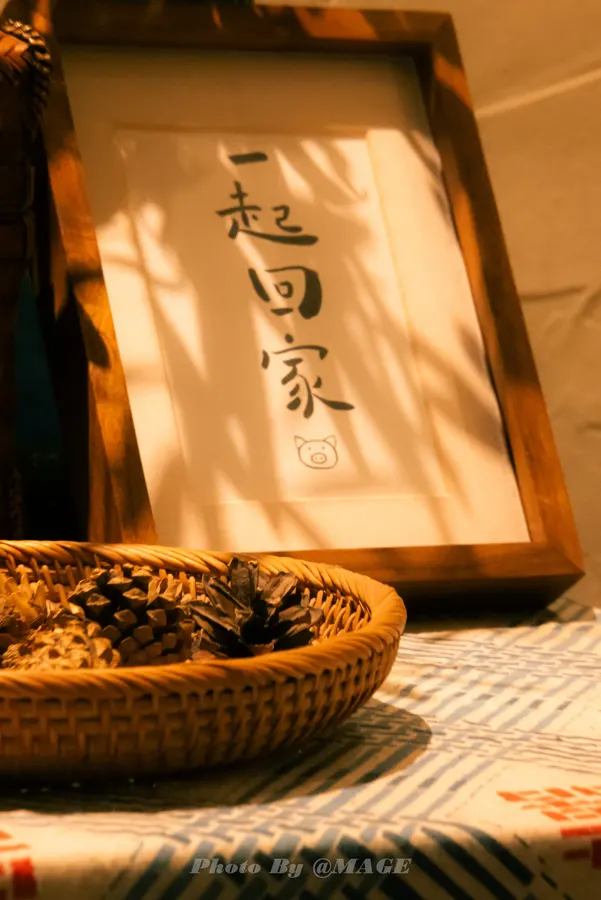 一起回家
Photo By @MAGE